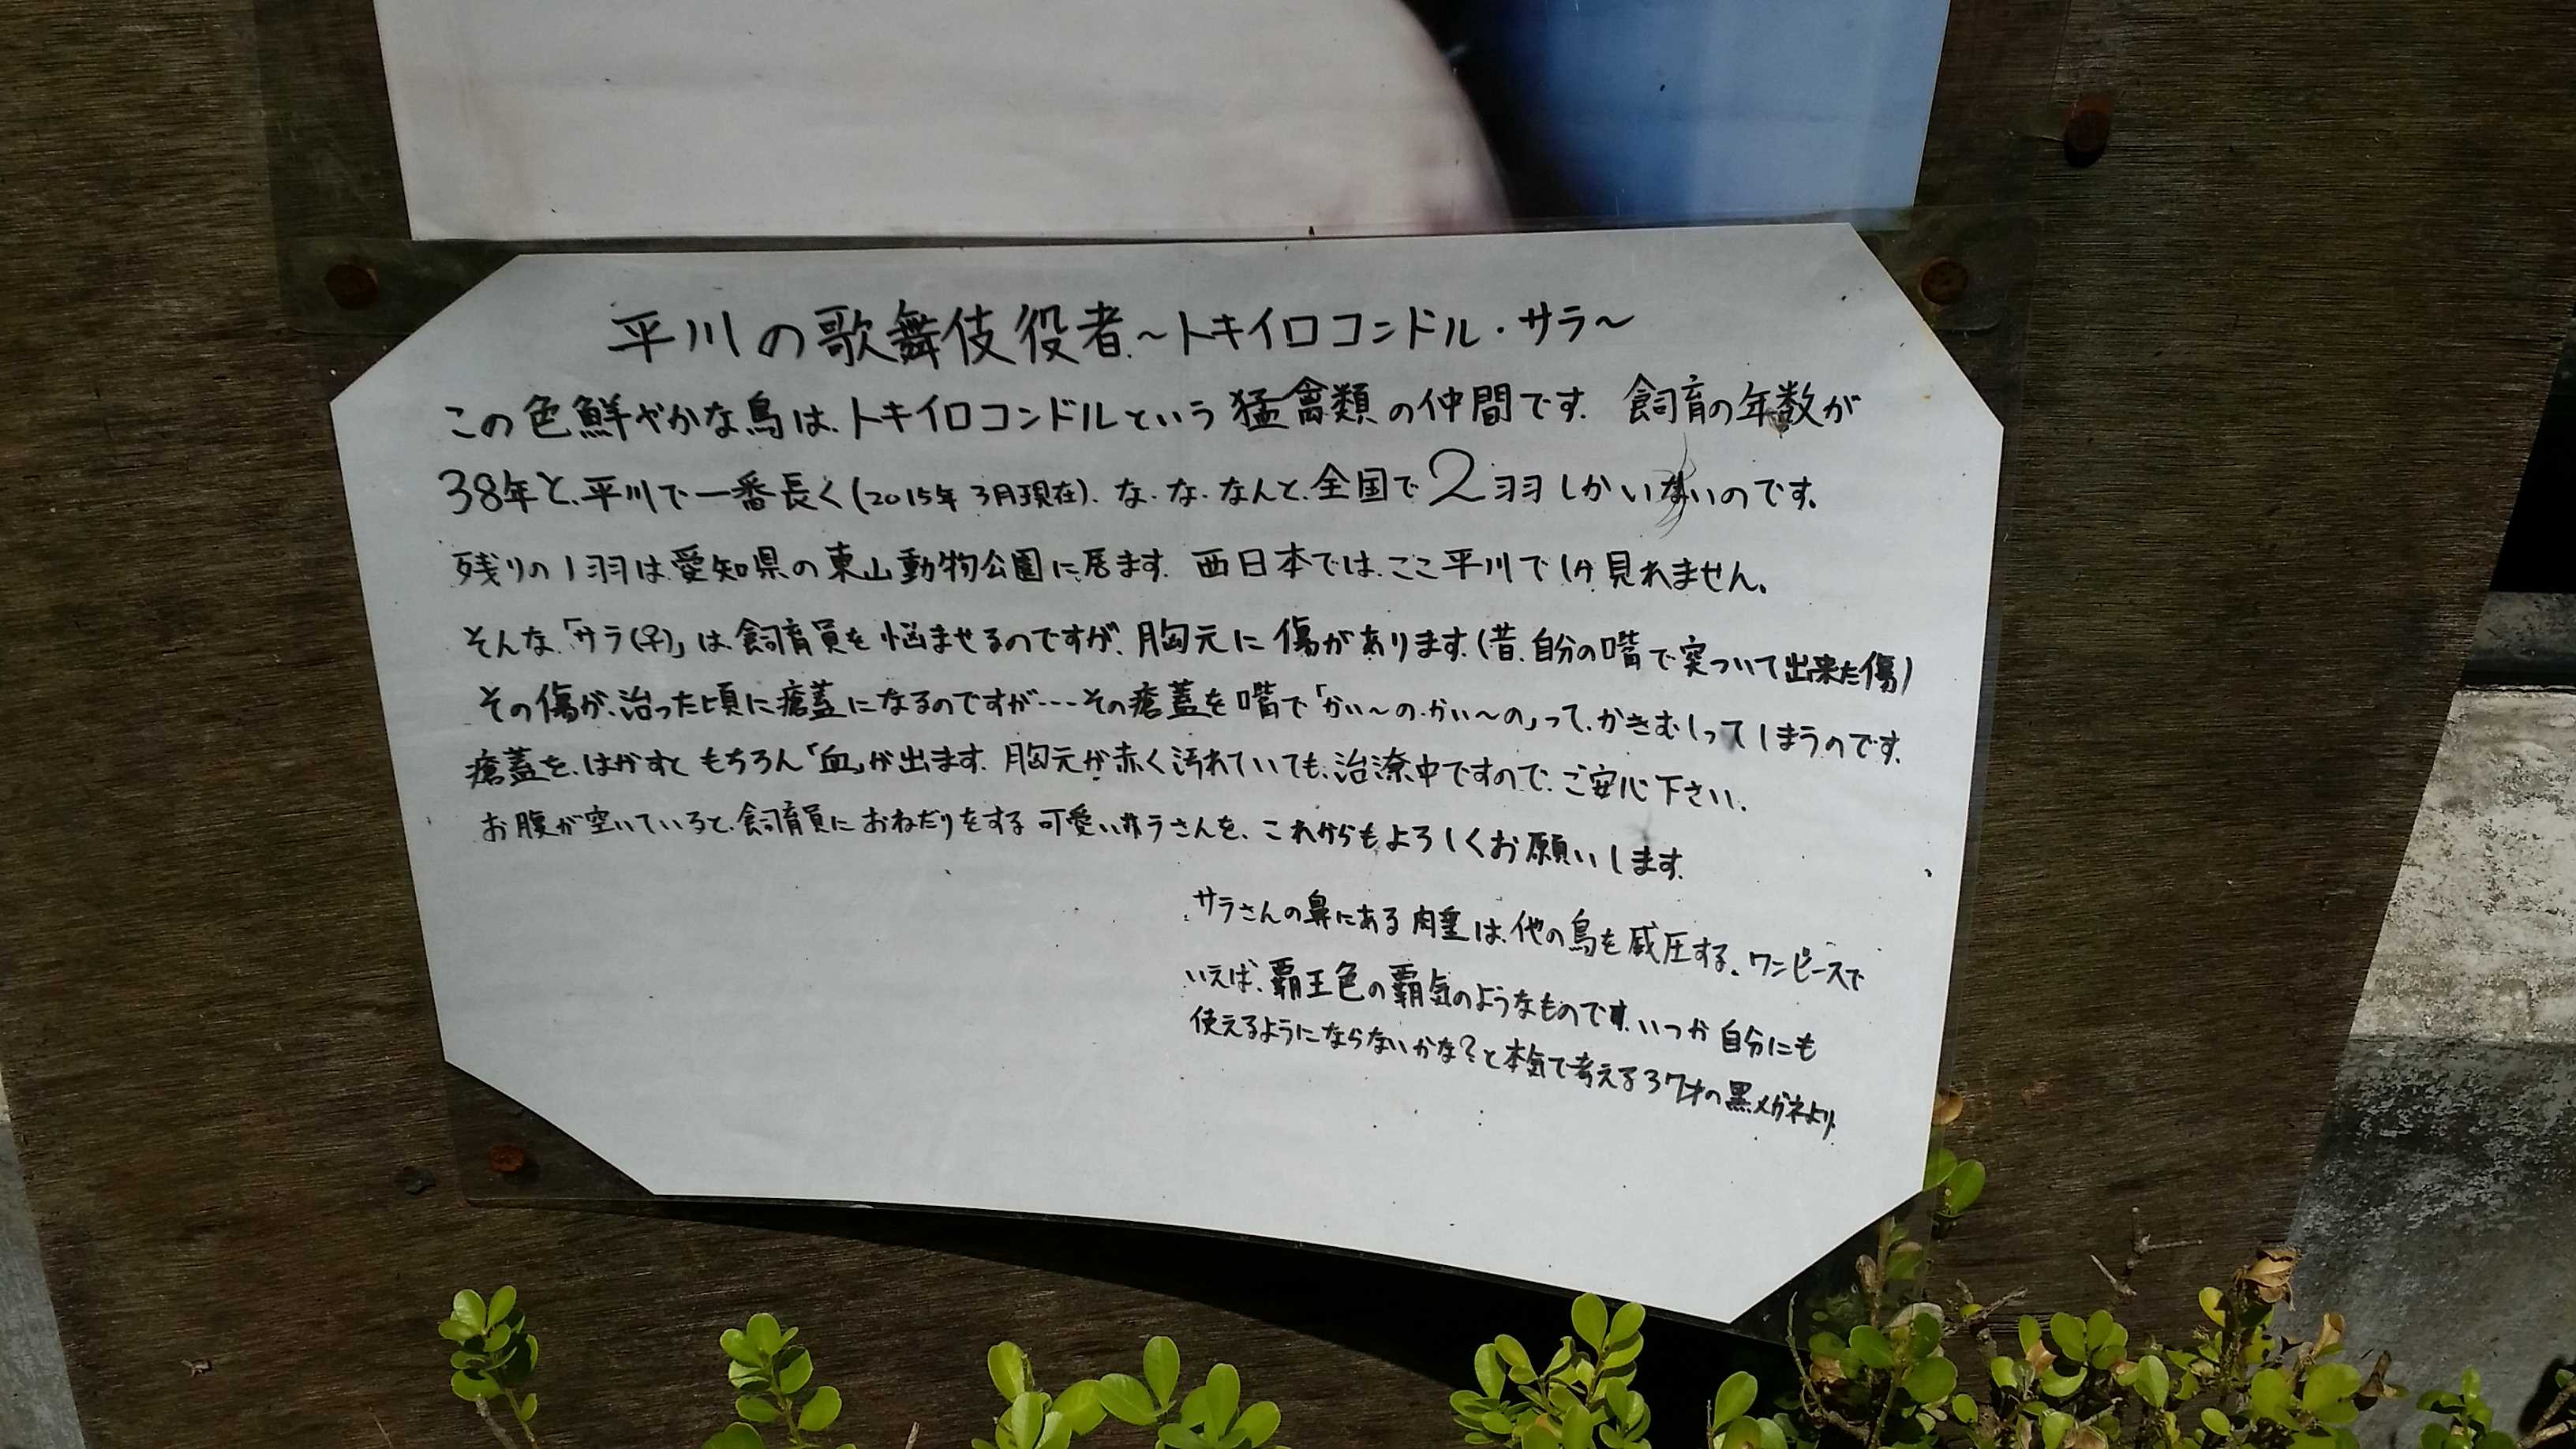 平川の歌舞伎役者～トキイロコンドル・サラ～
この色鮮やかな鳥は、トキイロコンドルという猛禽類の仲間です。飼育の年数が
38年と、平川で一番長く(2015年3月現在)、な、な、なんと、全国で2羽しかいないのです。
残りの1羽は、愛知県の東山動物公園に居ます。西日本では、ここ平川でしか見れません。
そんな「サラ(♀)」は、飼育員を悩ませるのですが、胸元に傷があります。(昔、自分の嘴で突ついて出来た傷)
その傷が、治った頃に瘡蓋になるのですが…その瘡蓋を嘴で「かい～の、かい～の」って、かきむしってしまうのです。
瘡蓋を、はがすともちろん「血」が出ます。胸元が赤く汚れていても、治療中ですので、ご安心下さい。
お腹が空いていると、飼育員におねだりをする可愛いサラさんを、これからもよろしくお願いします。
サラさんの鼻にある肉垂は、他の鳥を威圧する、ワンピースで
いえば、覇王色の覇気のようなものです。いつか自分にも
使えるようにならないかな?と本気で考える37才の黒メガネより。